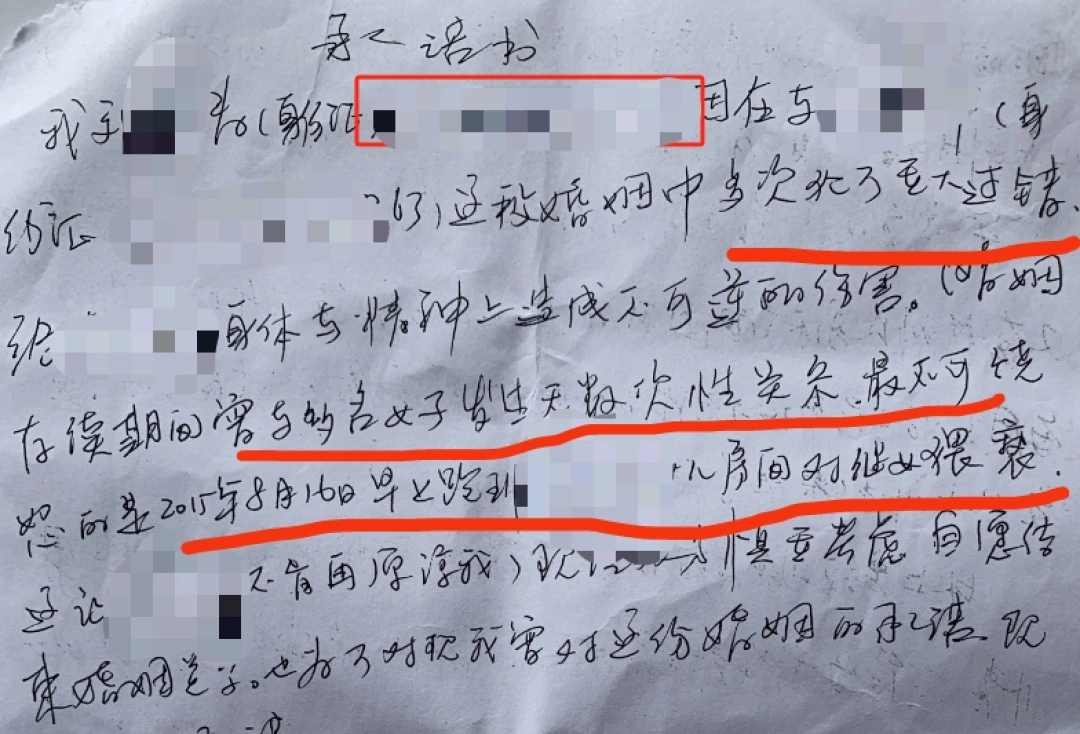 承诺书
我王 为(身份证 因在与 (身
份证 63)这段婚姻中多次犯了重大过错.
给 身体与精神上造成不可逆的伤害。(婚姻
存续期间曾与多名女子发生无数次性关系.最不可饶
恕的是2015年8月16日早上跑到 房间对继女猥亵.
这让 不肯再原谅我)现 慎重考虑自愿结
束婚姻关系。也为了对现我曾对这份婚姻的承诺.现